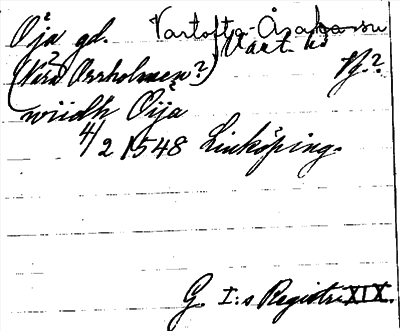 Öja gd. Vartofta-Åsaka sn
(Vid Orrholmen?) Vart. hd
Vg.?
wiidh Öija
4/2 1548 Linköping.
G. I:s Registr. XIX.